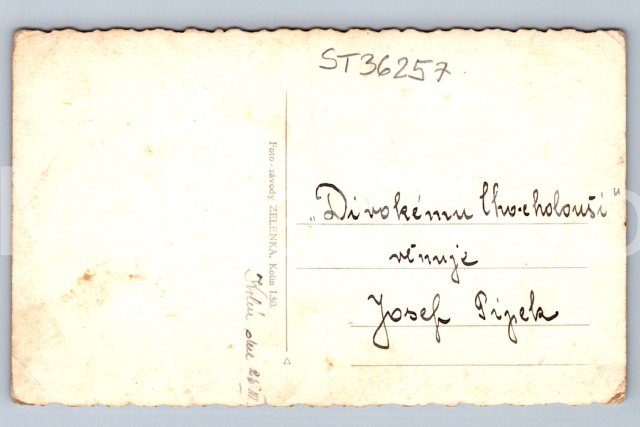 ST36257
Foto-závody ZELENKA, Kolín I.80.
Kolín dne 25
„Divokému Chocholouši“
věnuje
Josef